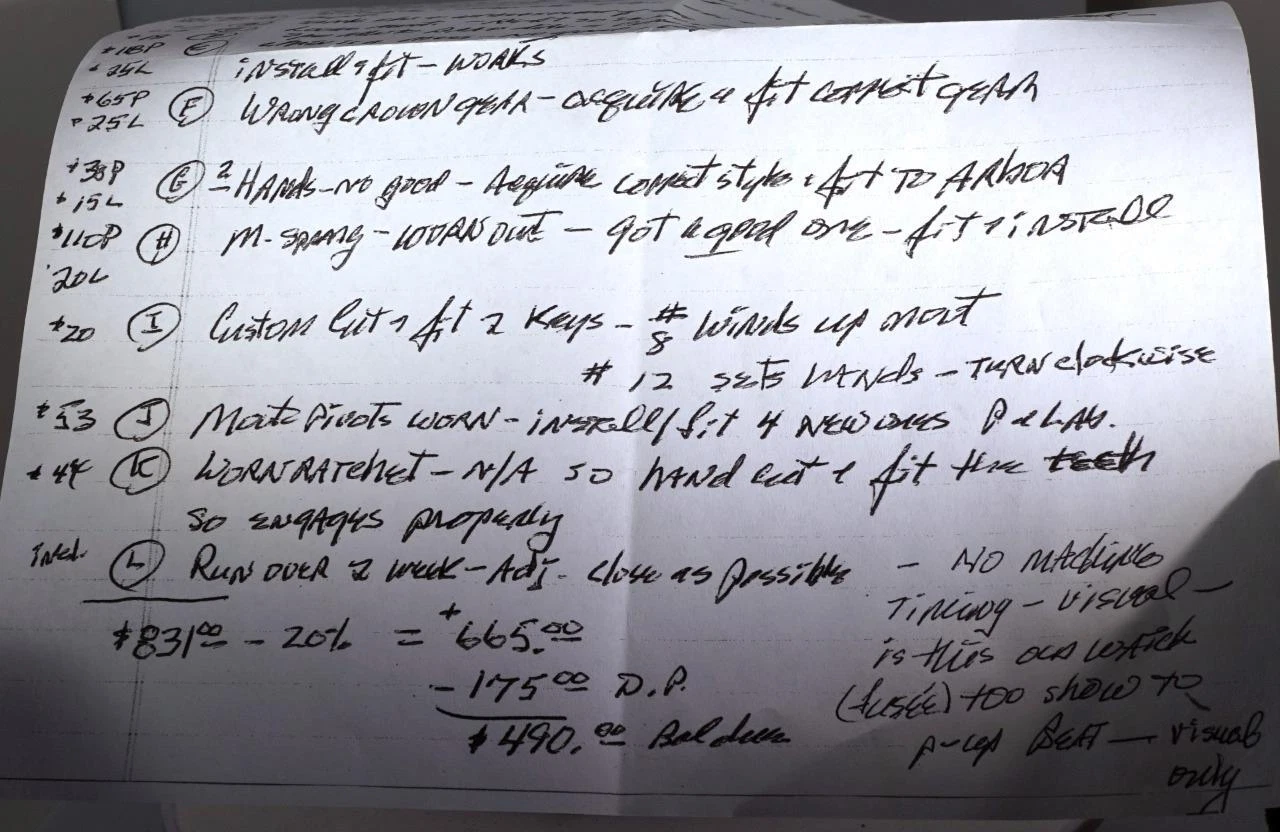 $18P E
$25L install & fit - works
$65P F Wrong crown gear - acquire & fit correct gear
$25L
$38P G 2 - Hands - no good - Acquire correct style & fit to Arbor
$15L
$110P H M. spring - worn out - got a good one - fit & install
20L
$20 I Custom cut & fit 2 Keys - #8 winds up movt
# 12 sets hands - Turn clockwise
$53 J Movt Pivots worn - install/fit 4 new ones P & Lab.
$44 K Worn Ratchet - N/A so hand cut & fit the teeth
so engages properly
incl. L Run over 2 week - Adj. close as possible - No machine
Timing - visual -
$831.00 - 20% = $665.00
is this old watch
- 175.00 D.P.
(fusée) too show to
$490.00 Bal due
p-up Beat - visual
only